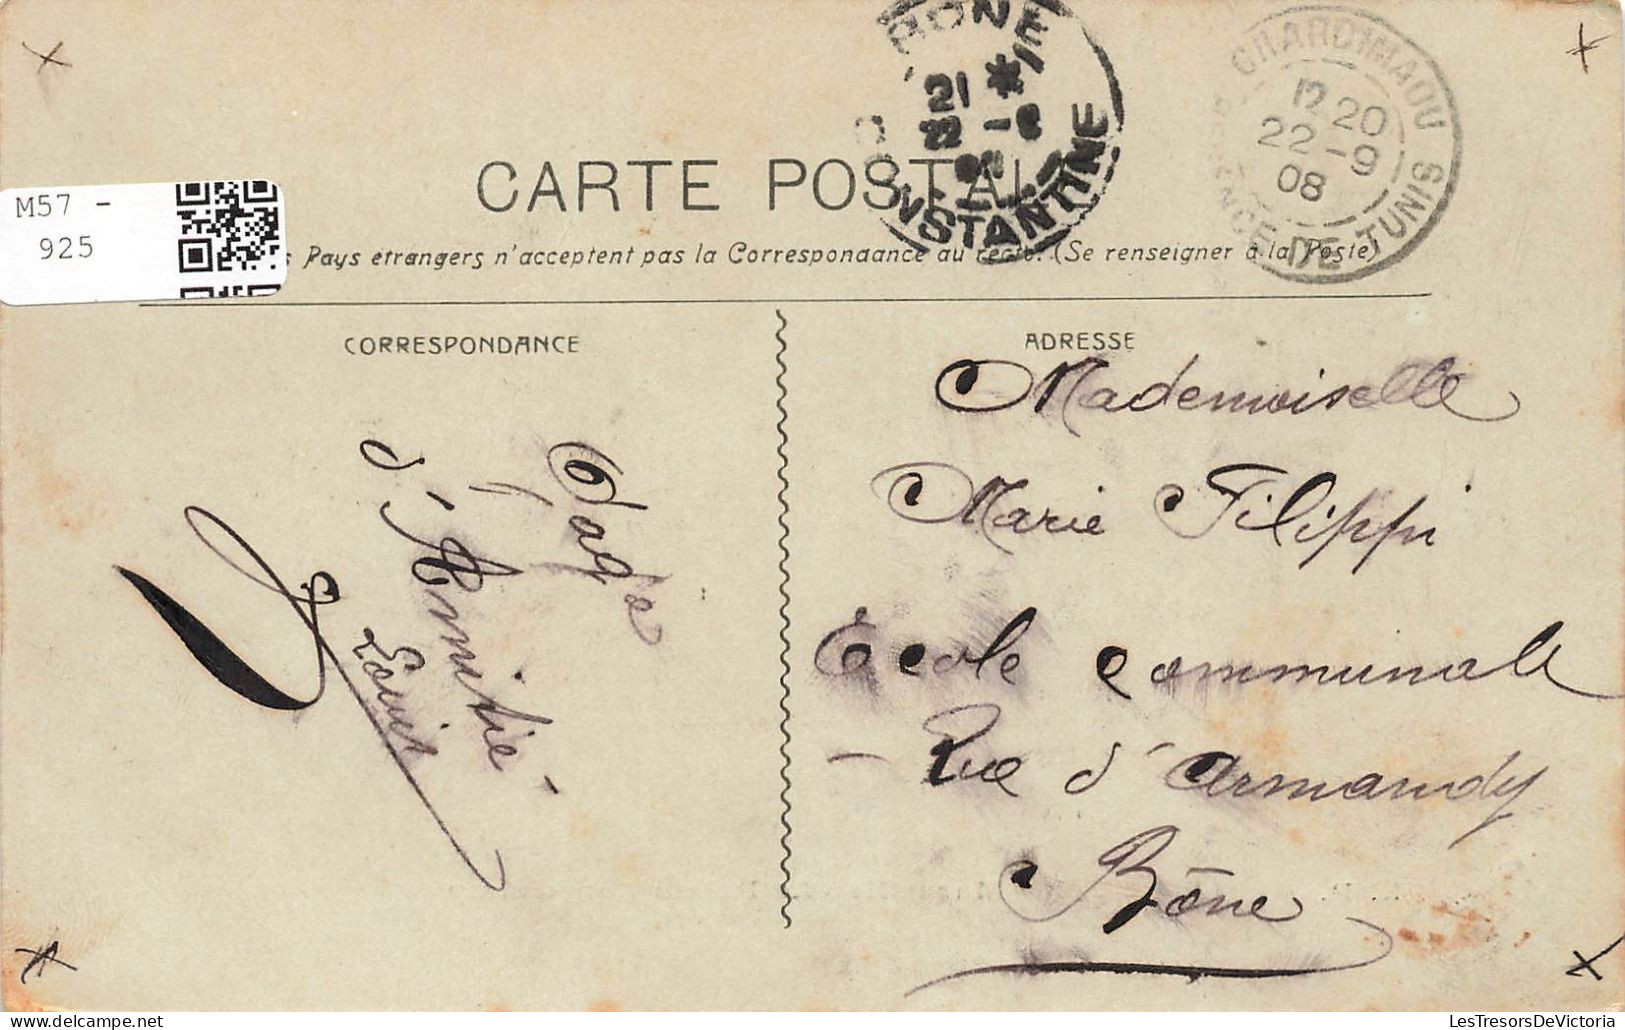 BONE
21 *
22 -9
08
CONSTANTINE
GHARDIMAOU
12 20
22 -9
08
REGENCE DE TUNIS
CARTE POSTALE
M57 -
925
s Pays étrangers n'acceptent pas la Correspondance au recto. (Se renseigner à la Poste)
CORRESPONDANCE
Gage
d'Amitié -
Louis
ADRESSE
Mademoiselle
Marie Filippi
École communale
- Rue d'Armandy
Bône
LesTresorsDeVictoria